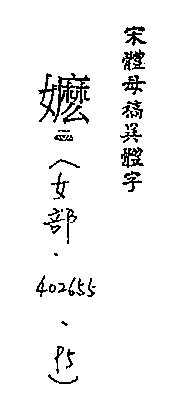 宋體母稿異體字
嬷
二
(女部.402655、P5)